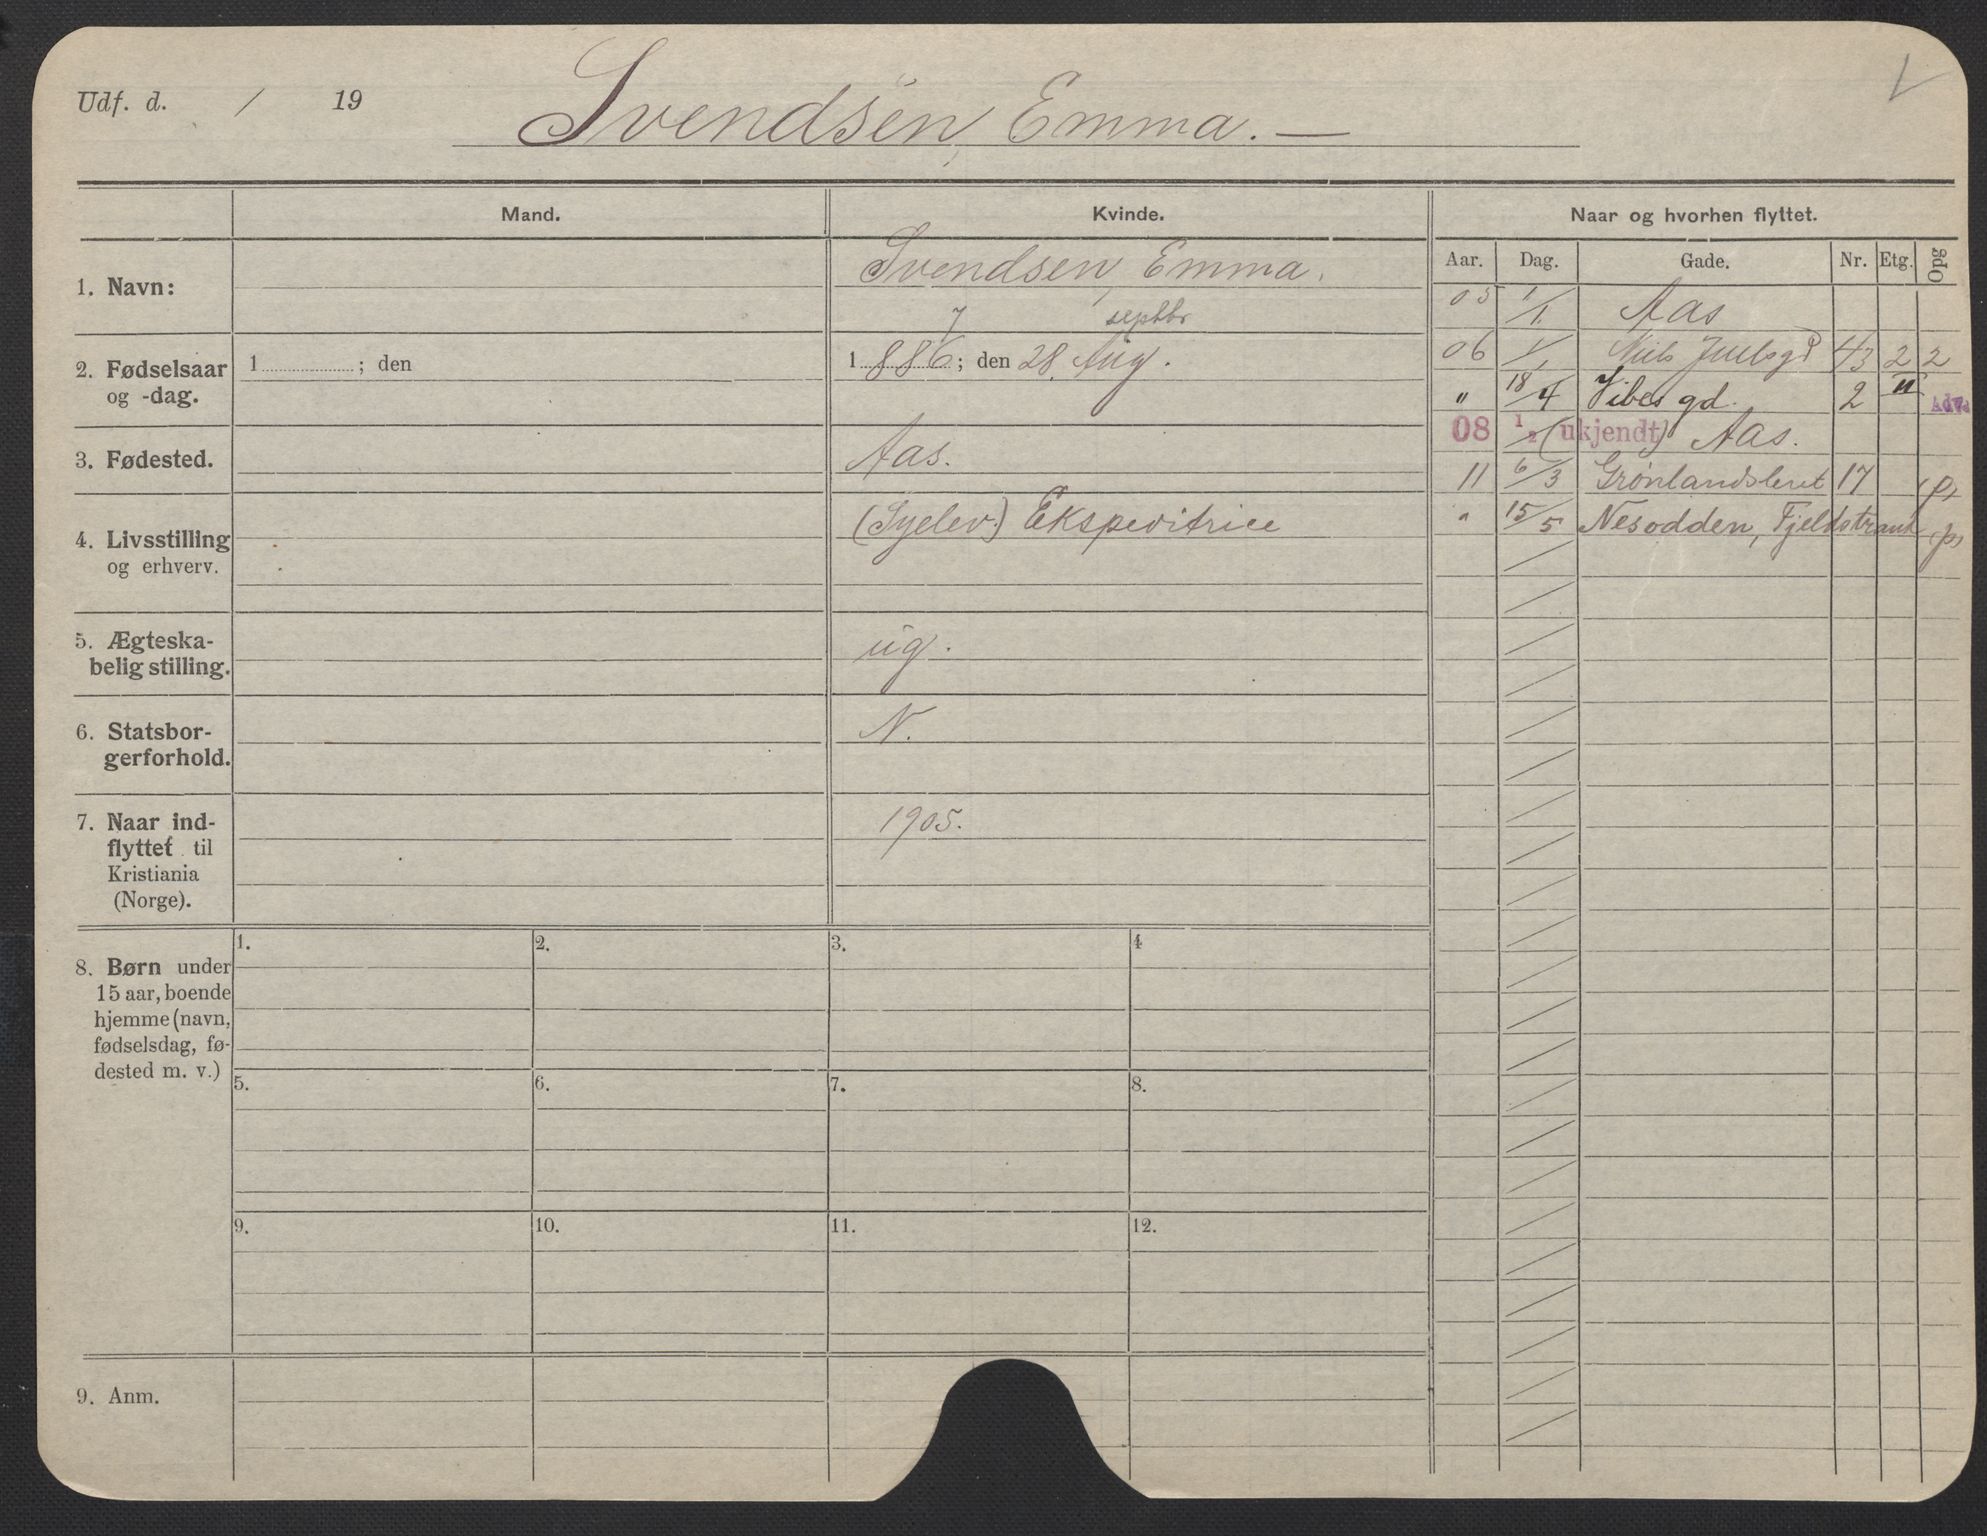 Udf. d. / 19
Svendsen, Emma. —
Mand.
Kvinde.
Naar og hvorhen flyttet.
Aar. Dag. Gade. Nr. Etg. Opg
1. Navn:
Svendsen, Emma.
7 septbr
2. Fødselsaar
og -dag.
1 ; den
1 886; den 28 Aug.
3. Fødested.
Aas.
4. Livsstilling
og erhverv.
(Syelev.) Ekspeditrice
5. Ægteska-
belig stilling.
ug.
6. Statsbor-
gerforhold.
N.
7. Naar ind-
flyttet til
Kristiania
(Norge).
1905.
05 1/1 Aas
06 1/1 Niels Juelsgd 43 2 2
" 18/4 Vibes gd. 2 II
08 1/2 (ukjendt) Aas.
11 6/3 Grønlandsleret 17 (p)
" 15/5 Nesodden, Fjeldstrand (p)
8. Børn under
15 aar, boende
hjemme (navn,
fødselsdag, fø-
dested m. v.)
1. 2. 3. 4
5. 6. 7. 8.
9. 10. 11. 12.
9. Anm.